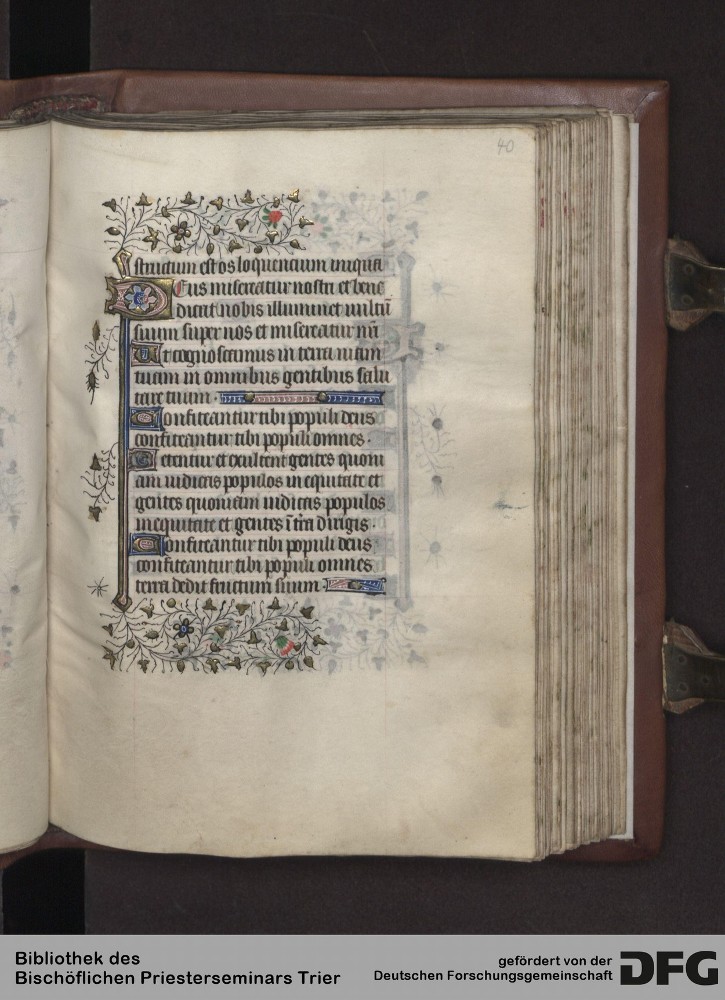 40
structum est os loquencium iniqua
Deus misereatur nostri et bene
dicat nobis illuminet vultū
suum super nos et misereatur nr̄i
Ut cognoscamus in terra viam
tuam in omnibus gentibus salu
tare tuum.
Confiteantur tibi populi deus
confiteantur tibi populi omnes.
Letentur et exultent gentes quoni
am iudicas populos in equitate et
gentes quoniam iudicas populos
in equitate et gentes ī tr̄a dirigis.
Confiteantur tibi populi deus
confiteantur tibi populi omnes
terra dedit fructum suum.
Bibliothek des
Bischöflichen Priesterseminars Trier
gefördert von der
Deutschen Forschungsgemeinschaft
DFG